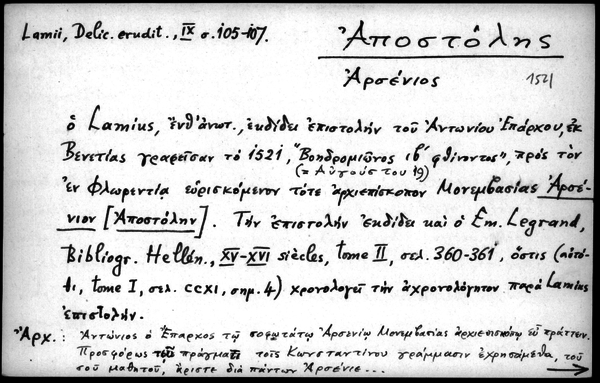 Lamii, Delic. erudit., IX σ. 105-107.
Ἀποστόλης
Ἀρσένιος
1521
ὁ Lamius, ἔνθ' ἀνωτ., ἐκδίδει ἐπιστολὴν τοῦ Ἀντωνίου Ἐπάρχου, ἐκ
Βενετίας γραφεῖσαν τὸ 1521, "Βοηδρομιῶνος ιβ´ φθίνοντος", πρὸς τὸν
(= Αὐγούστου 19)
ἐν Φλωρεντίᾳ εὑρισκόμενον τότε ἀρχιεπίσκοπον Μονεμβασίας Ἀρσέ-
νιον [Ἀποστόλην]. Τὴν ἐπιστολὴν ἐκδίδει καὶ ὁ Em. Legrand,
Bibliogr. Hellén., XV-XVI siècles, tome II, σελ. 360-361, ὅστις (αὐτό-
θι, tome I, σελ. CCXI, σημ. 4) χρονολογεῖ τὴν ἀχρονολόγητον παρὰ Lamius
ἐπιστολήν.
Ἀρχ.: Ἀντώνιος ὁ Ἔπαρχος τῷ σοφωτάτῳ Ἀρσενίῳ Μονεμβασίας ἀρχιεπισκόπῳ εὖ πράττειν.
Προσφόρως τοῖς Κωνσταντίνου γράμμασιν ἐχρησάμεθα, τοῦ
σοῦ μαθητοῦ, ἄριστε διὰ πάντων Ἀρσένιε...